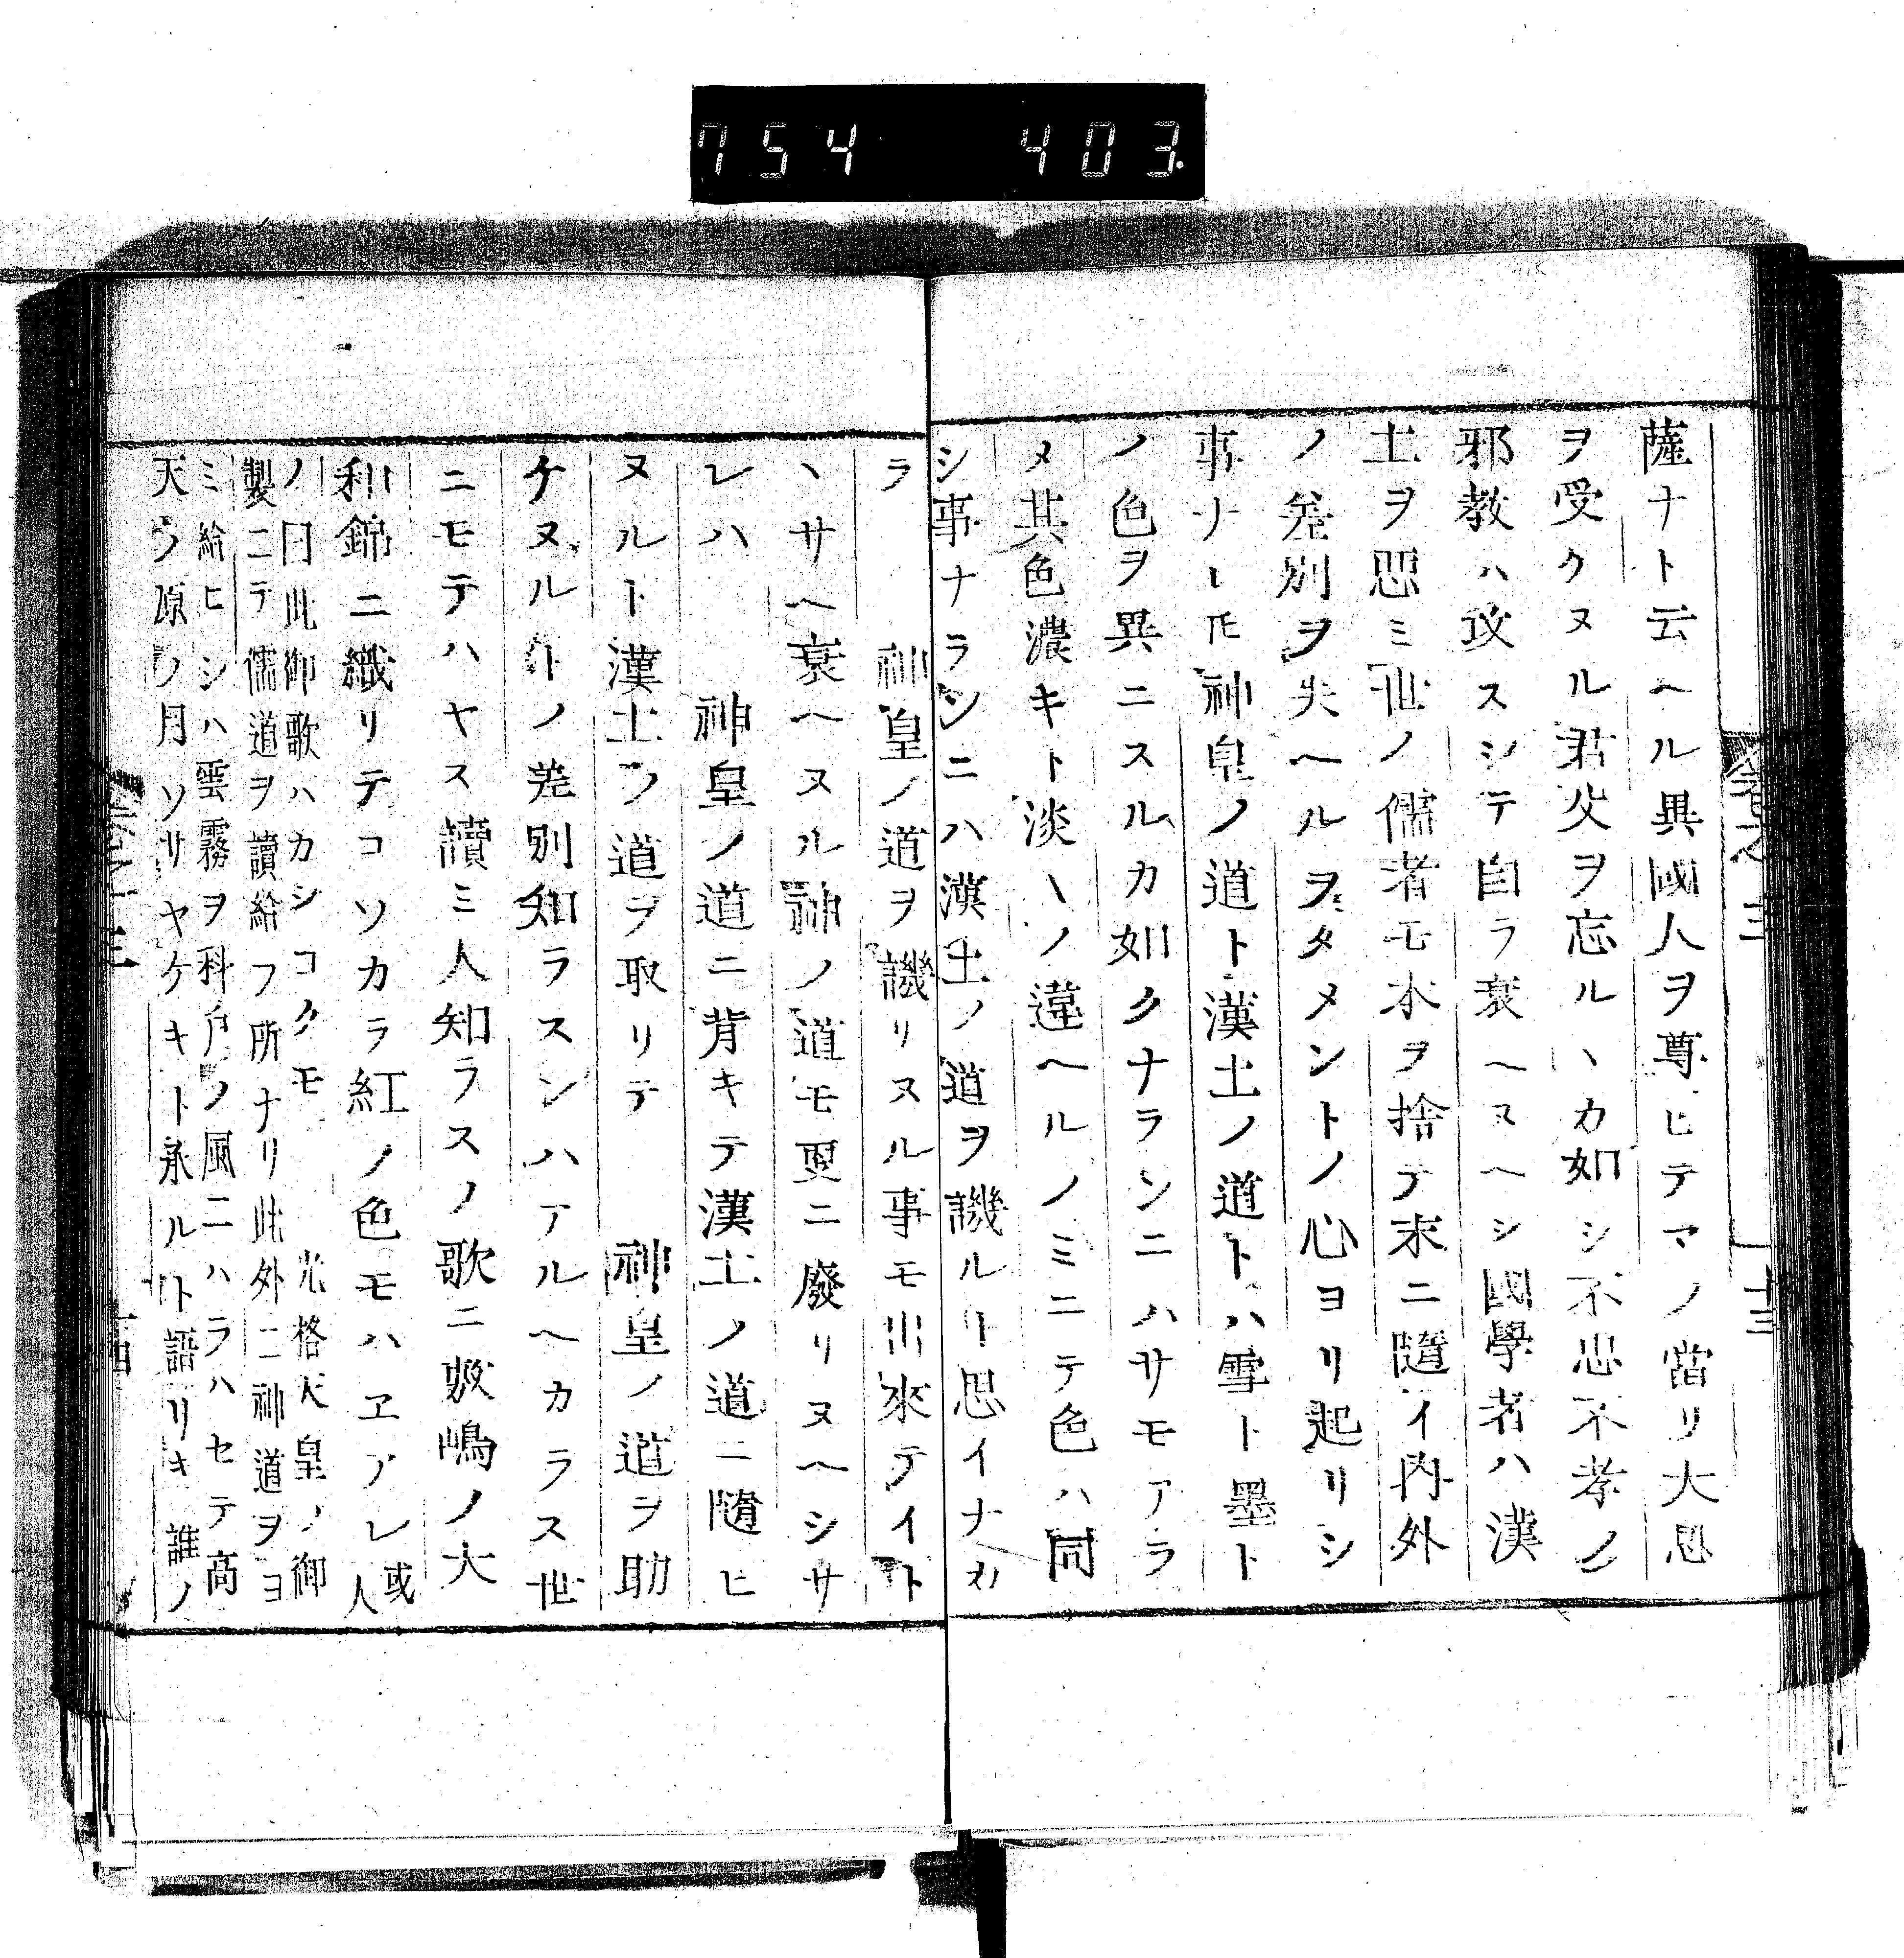 754 403.
薩ナト云ヘル異國人ヲ尊ヒテマノ當リ大恩
ヲ受クヌル君父ヲ忘ルヽカ如シ不忠不孝ノ
邪教ハ攻スシテ自ラ衰ヘヌヘシ國學者ハ漢
土ヲ惡ミ世ノ儒者モ本ヲ捨テ末ニ隨イ内外
ノ差別ヲ失ヘルヲタメントノ心ヨリ起リシ
事ナレ𪜈神皇ノ道ト漢土ノ道トハ雪ト墨ト
ノ色ヲ異ニスルカ如クナランニハサモアラ
メ其色濃キト淡トノ違ヘルノミニテ色ハ同
シ事ナランニハ漢土ノ道ヲ譏ルト思イナカ
ラ 神皇ノ道ヲ譏リヌル事モ出來テイト
ヽサヘ衰ヘヌル神ノ道モ更ニ廢リヌヘシサ
レハ 神皇ノ道ニ背キテ漢土ノ道ニ隨ヒ
ヌルト漢土ノ道ヲ取リテ 神皇ノ道ヲ助
ケヌルトノ差別知ラスンハアルヘカラス世
ニモテハヤス讀ミ人知ラスノ歌ニ敷嶋ノ大
和錦ニ織リテコソカラ紅ノ色モハヱアレ或人
ノ曰此御歌ハカシコクモ 光格天皇ノ御
製ニテ儒道ヲ讀給フ所ナリ此外ニ神道ヲヨ
ミ給ヒシハ雲霧ヲ科戸ノ風ニハラハセテ高
天ノ原ノ月ソサヤケキト承ルト語リキ誰ノ
卷之三
十三